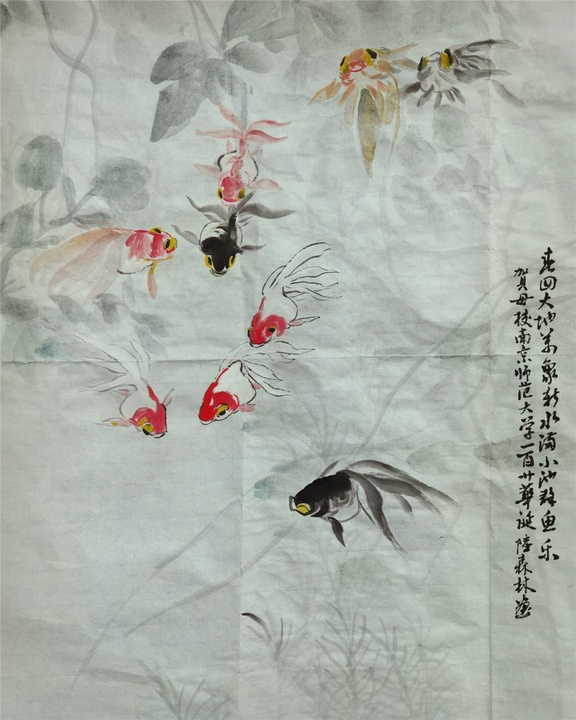 春回大地萬象新水满小池群鱼乐
贺母校南京师范大学一百廿華诞 陸森林